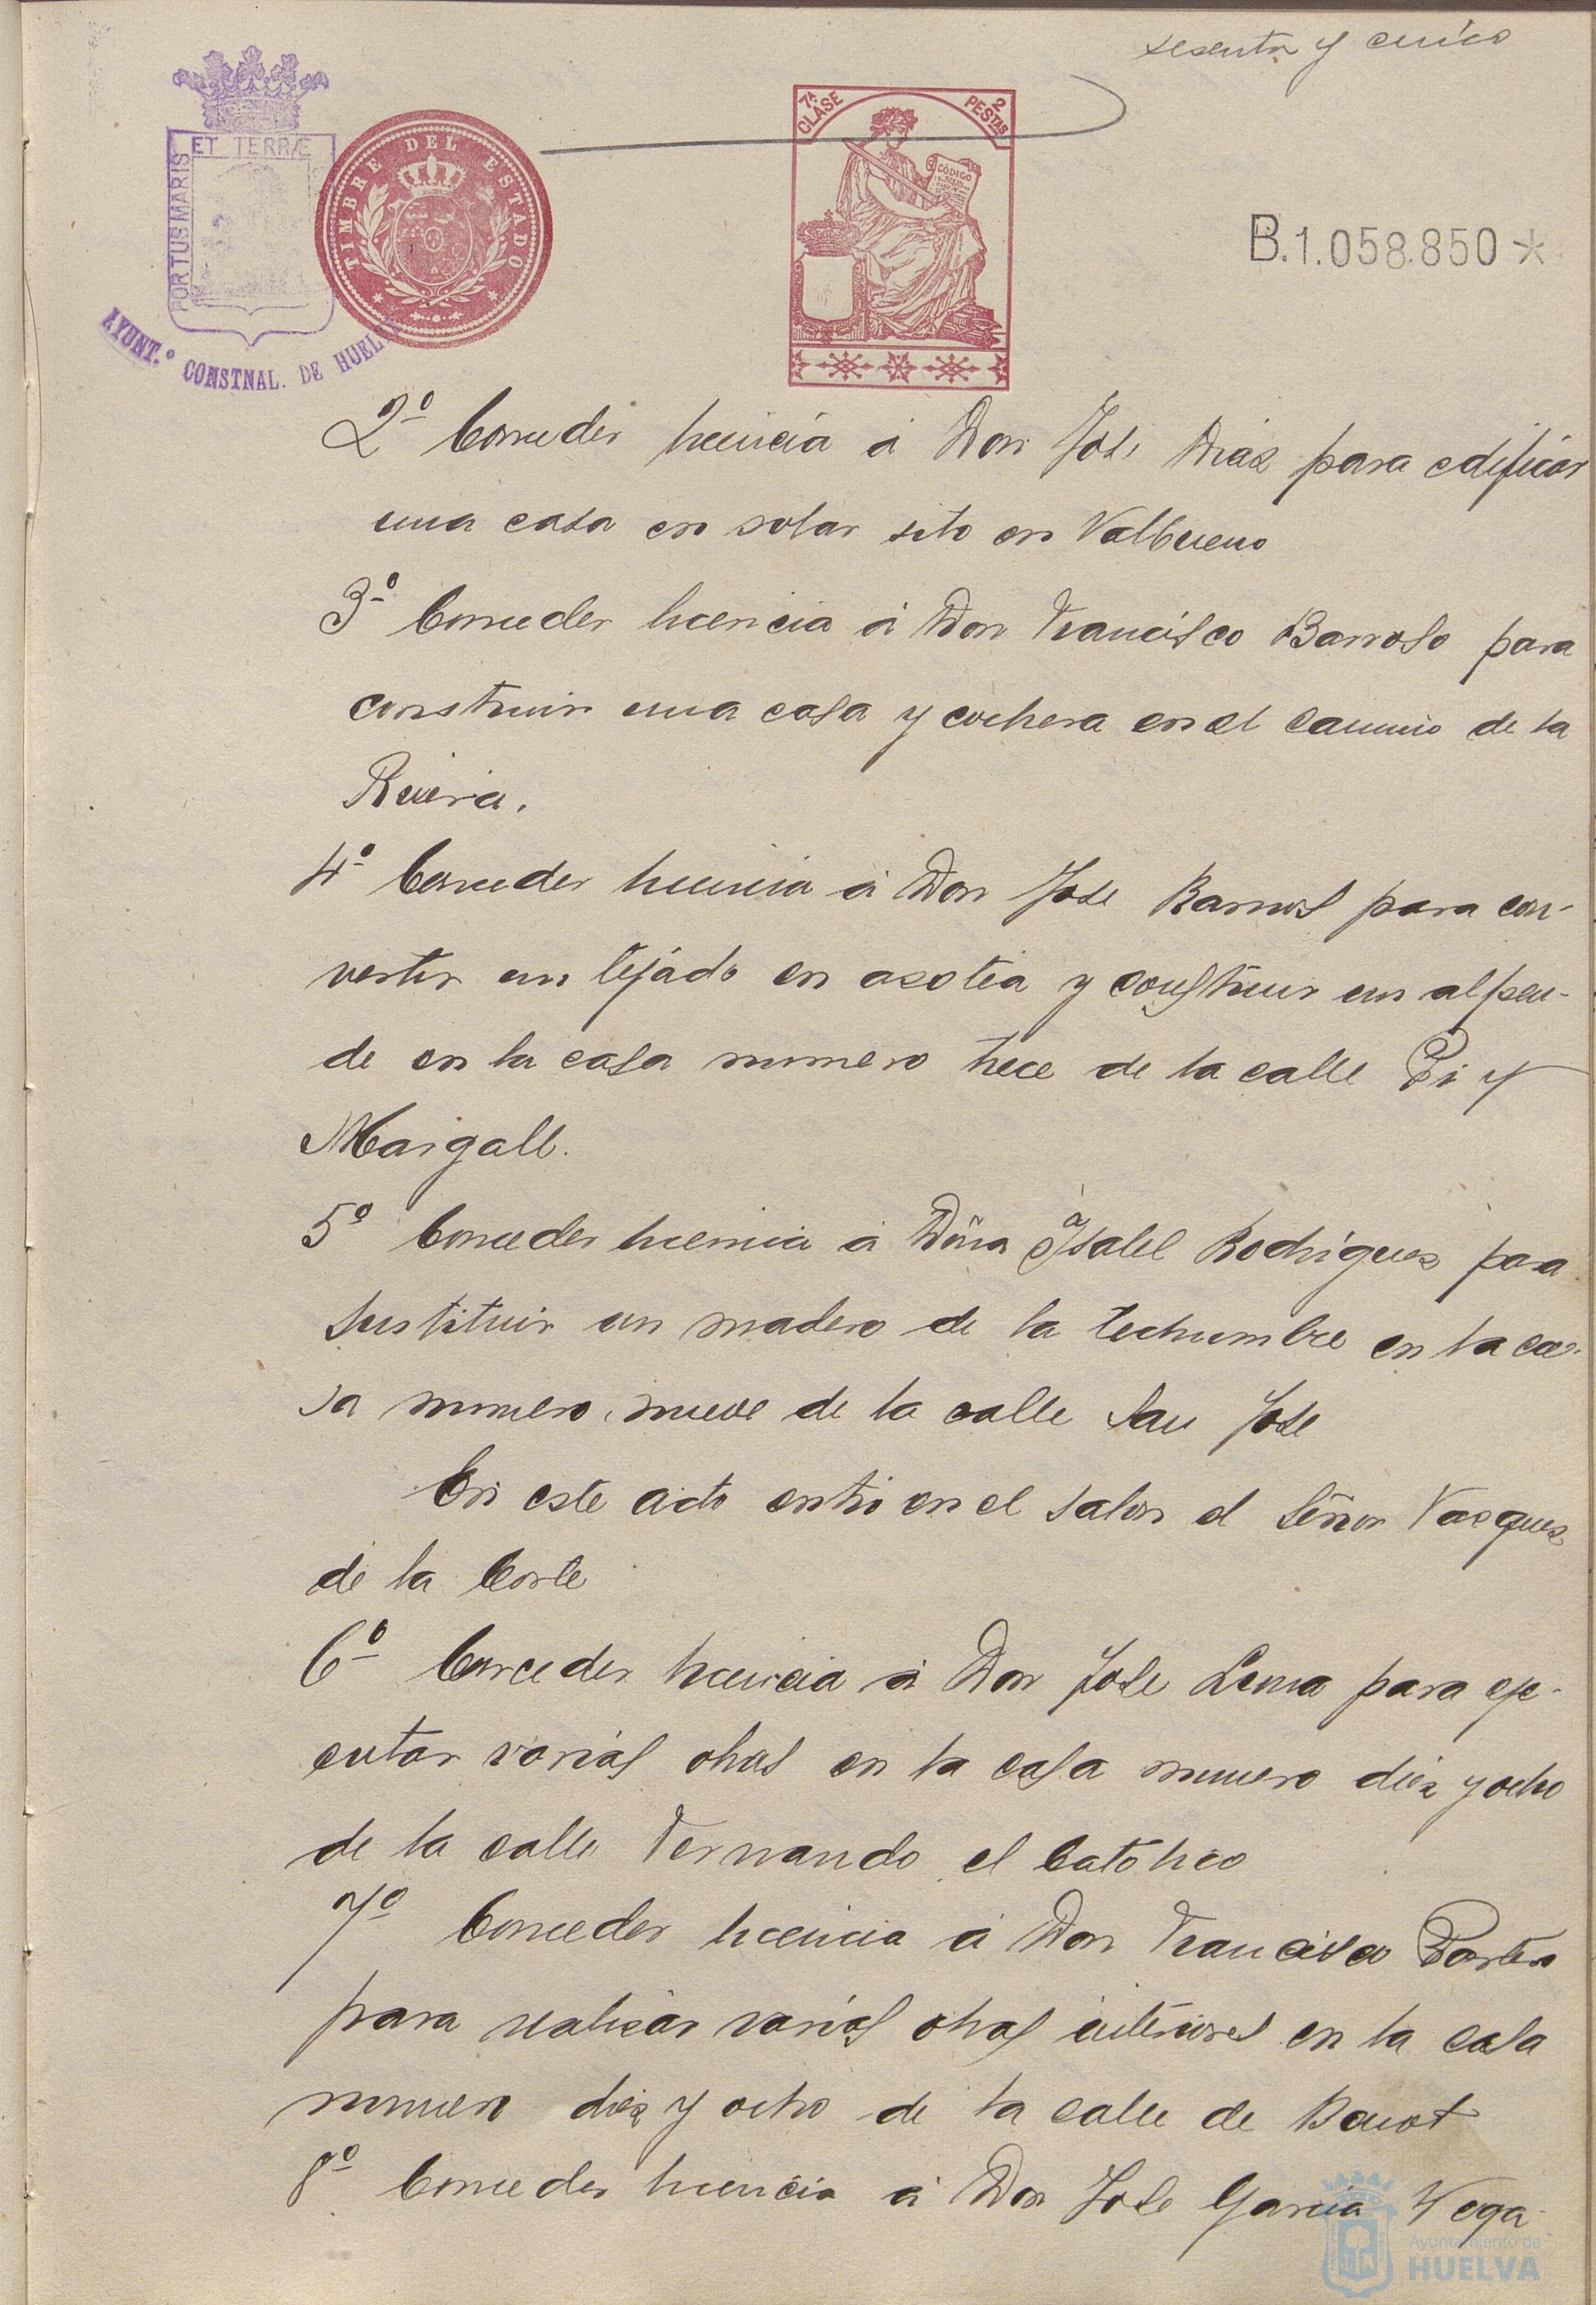 sesenta y cinco
ET TERRÆ
PORTUS MARIS
AYUNT.º CONSTNAL. DE HUELVA
TIMBRE DEL ESTADO
7ª CLASE
2 PESTAS
CÓDIGO
B.1.058.850*
2º Conceder licencia á Don José Diaz para edificar
una casa en solar sito en Valbueno
3º Conceder licencia á Don Francisco Barroso para
construir una casa y cochera en el camino de la
Rivera.
4º Conceder licencia á Don José Ramos para con-
vertir un tejado en azotea y construir un alpen-
de en la casa numero trece de la calle Pi y
Margall.
5º Conceder licencia á Doña Isabel Rodriguez para
sustituir un madero de la techumbre en la ca-
sa numero nueve de la calle San José
En este acto entró en el salon el Señor Vazquez
de la Corte
6º Conceder licencia á Don José Lema para eje-
cutar varias obras en la casa numero diez y ocho
de la calle Fernando el Católico
7º Conceder licencia á Don Francisco Portero
para realizar varias obras interiores en la casa
numero diez y ocho de la calle de
8º Conceder licencia á Don José Garcia Vega
Ayuntamiento de
HUELVA